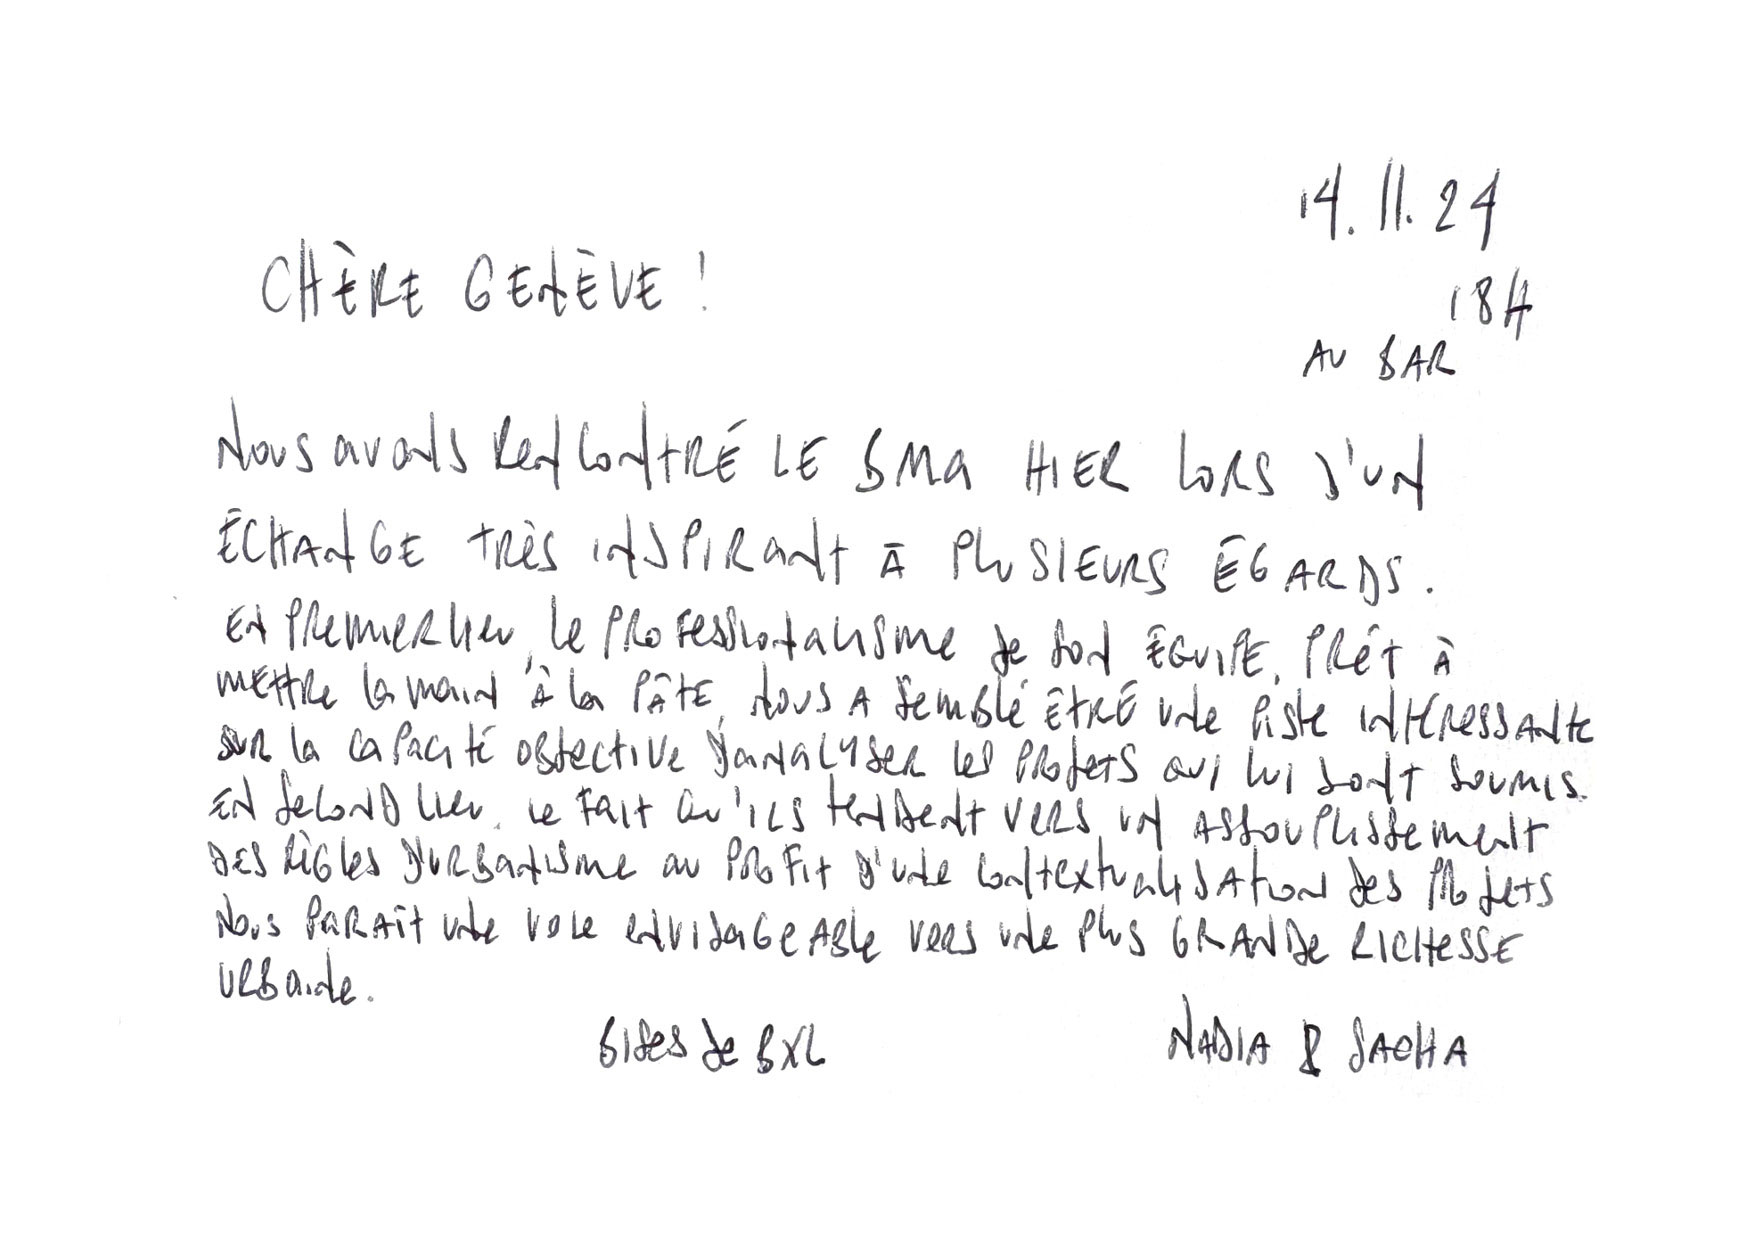 14.11.24
18H
AU BAR
CHÈRE GENÈVE !
Nous avons rencontré le BMA hier lors d'un
échange très inspirant à plusieurs égards.
En premier lieu, le professionalisme de son équipe, prêt à
mettre la main à la pâte, nous a semblé être une piste intéressante
sur la capacité objective d'analyser les projets qui lui sont soumis.
En second lieu, le fait qu'ils tendent vers un assouplissement
des règles d'urbanisme au profit d'une contextualisation des projets
nous paraît une voie envisageable vers une plus grande richesse
urbaine.
Bises de BXL
NADIA & SACHA